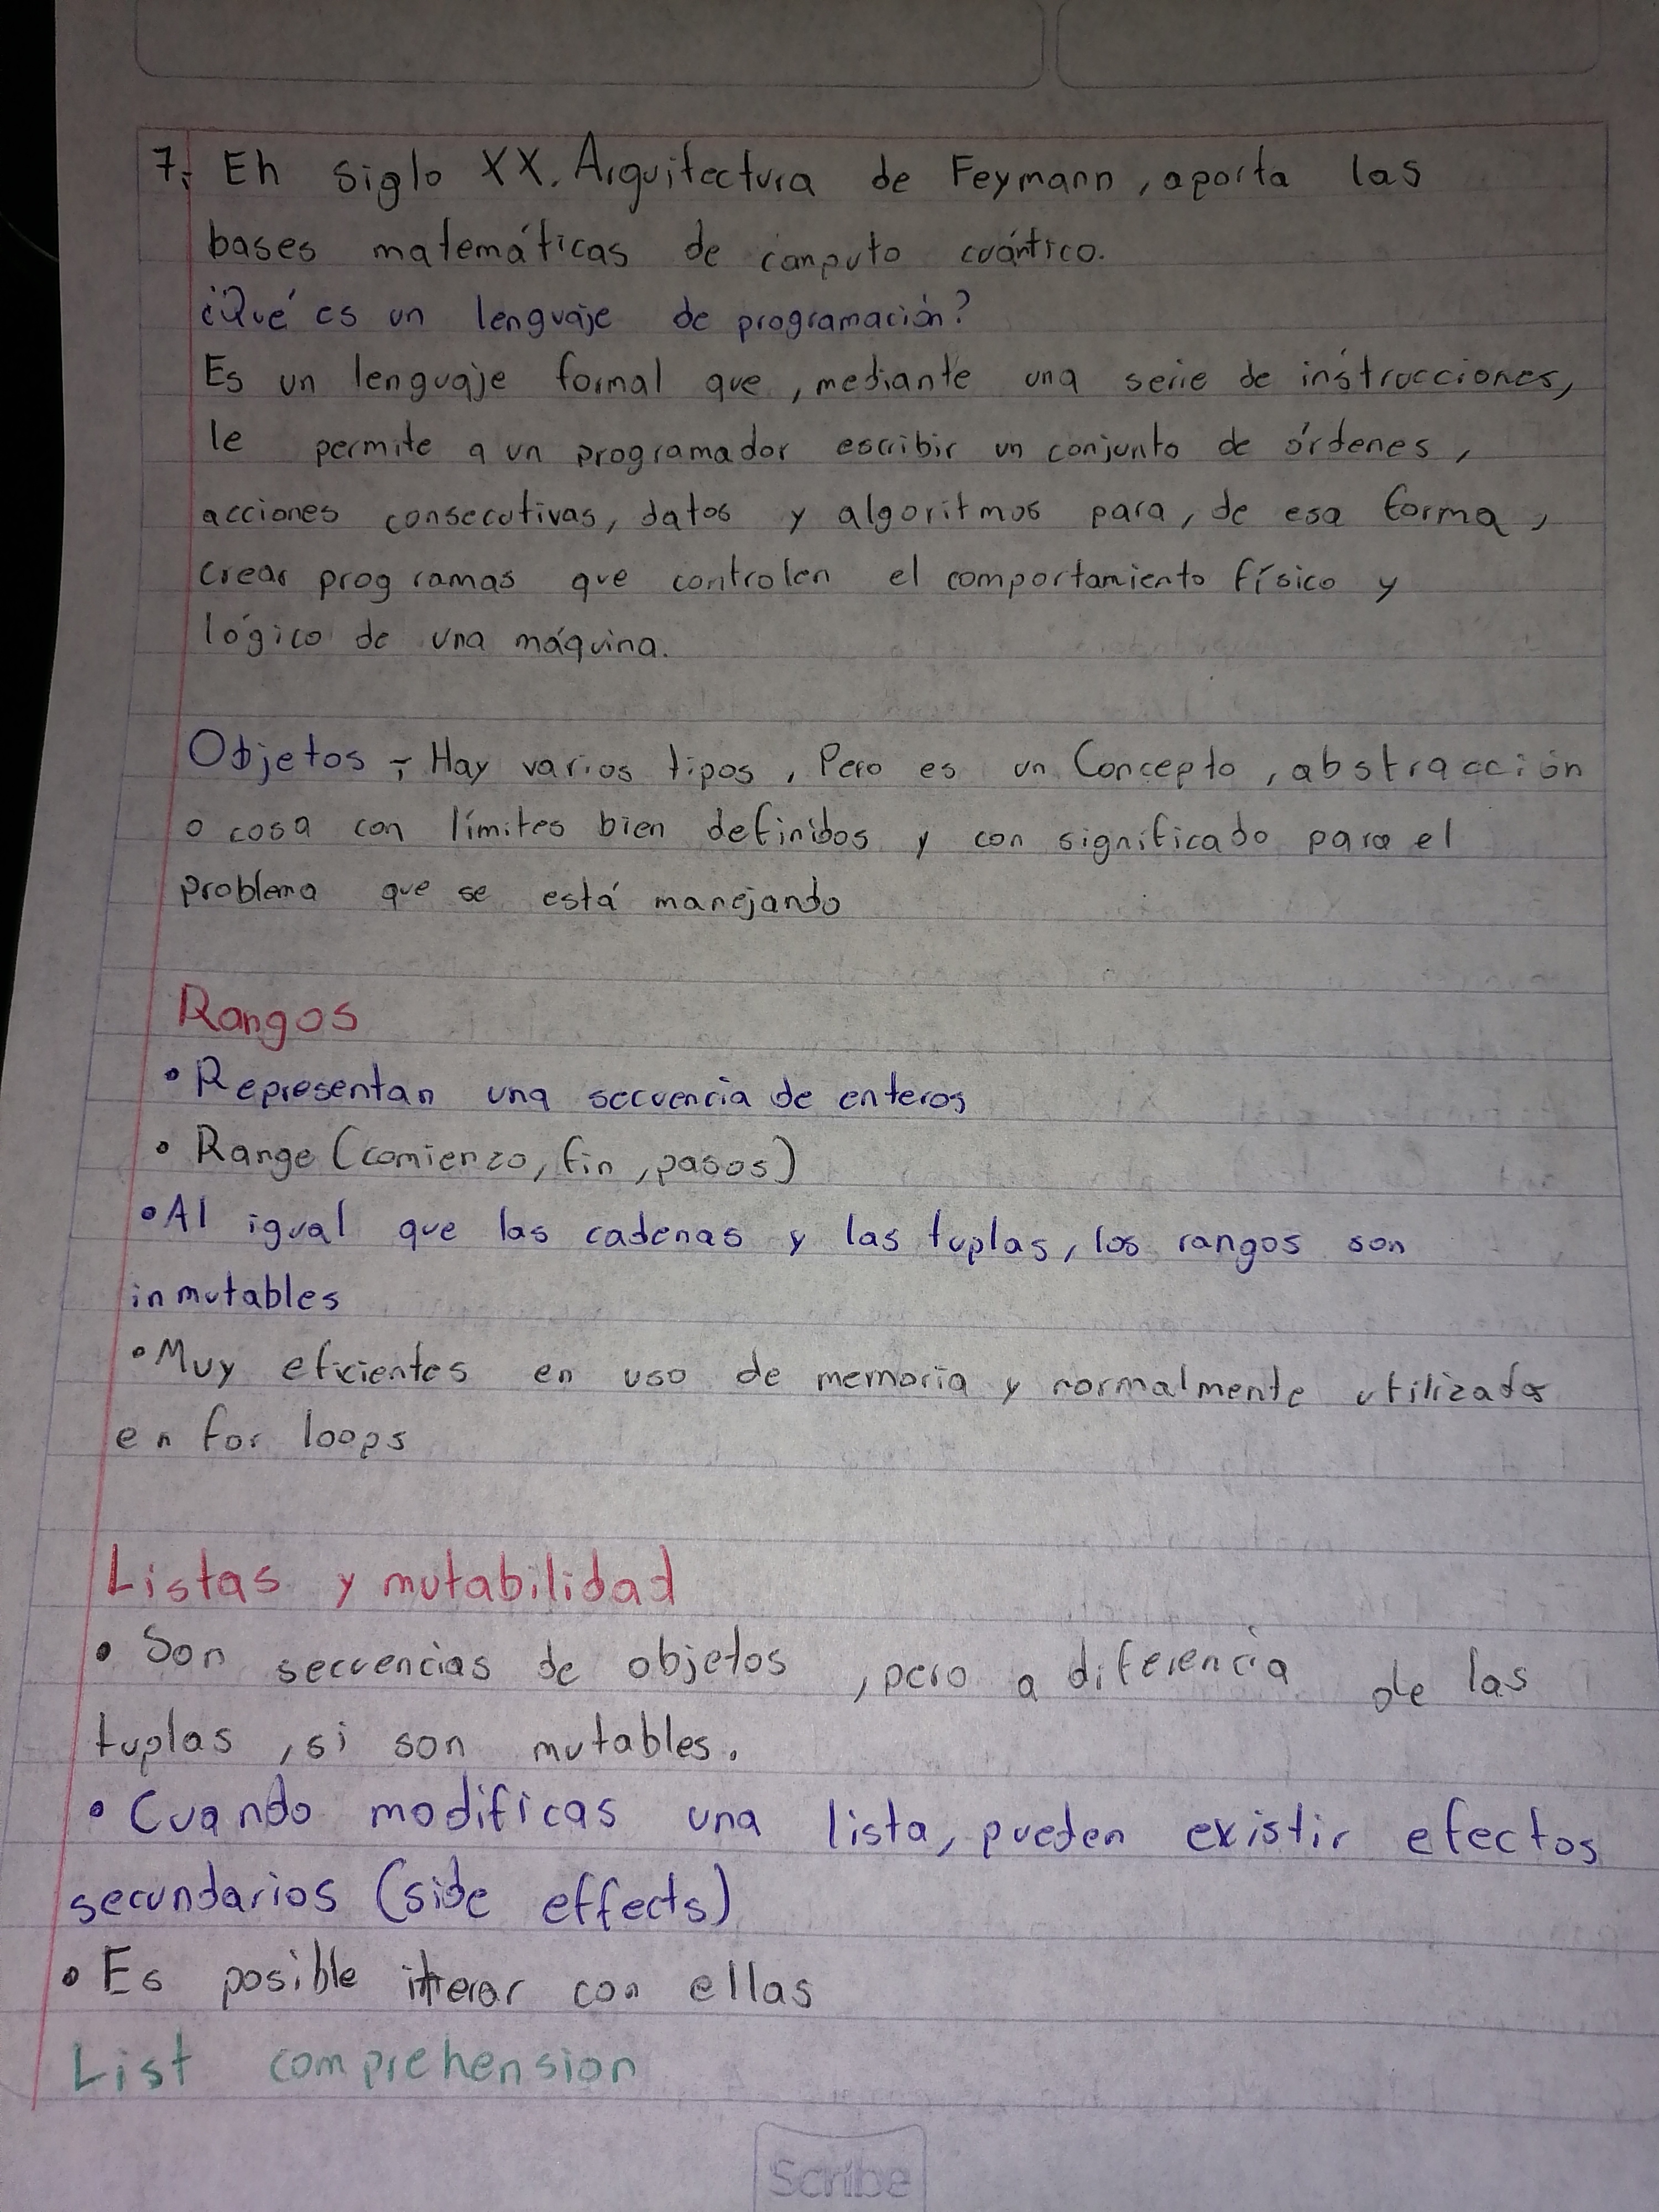 7.- En siglo XX. Arquitectura de Feymann, aporta las
bases matemáticas de computo cuántico.
¿Qué es un lenguaje de programación?
Es un lenguaje formal que, mediante una serie de instrucciones,
le permite a un programador escribir un conjunto de órdenes,
acciones consecutivas, datos y algoritmos para, de esa forma,
crear programas que controlen el comportamiento físico y
lógico de una máquina.
Objetos - Hay varios tipos, Pero es un Concepto, abstracción
o cosa con límites bien definidos y con significado para el
problema que se está manejando
Rangos
• Representan una secuencia de enteros
• Range (comienzo, fin, pasos)
• Al igual que las cadenas y las tuplas, los rangos son
inmutables
• Muy eficientes en uso de memoria y normalmente utilizados
en for loops
Listas y mutabilidad
• Son secuencias de objetos, pero a diferencia de las
tuplas, si son mutables.
• Cuando modificas una lista, pueden existir efectos
secundarios (side effects)
• Es posible iterar con ellas
List comprehension
Scribe